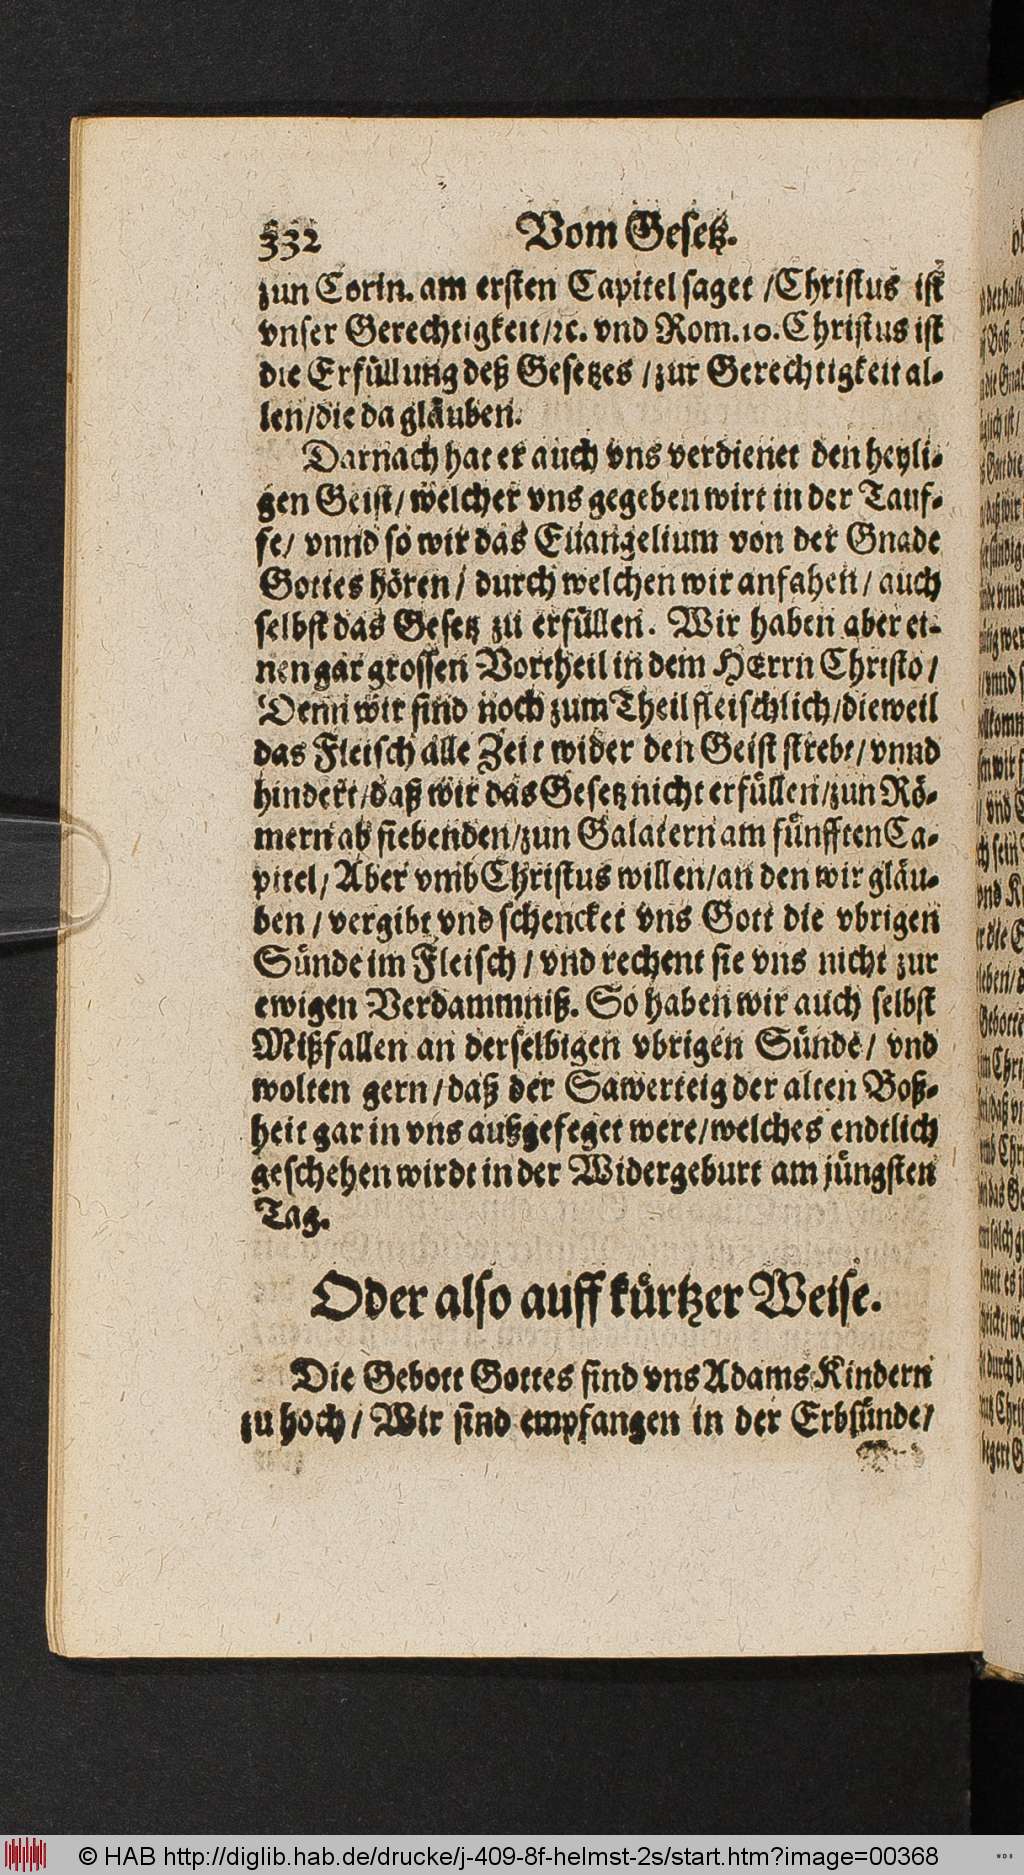 332 Vom Gesetz.
zun Corin. am ersten Capitel saget /Christus ist
vnser Gerechtigkeit/ꝛc. vnd Rom.10. Christus ist
die Erfüllung deß Gesetzes /zur Gerechtigkeit al-
len/die da gläuben.
Darnach hat er auch vns verdienet den heyli-
gen Geist/welcher vns gegeben wirt in der Tauf-
fe/ vnnd so wir das Euangelium von der Gnade
Gottes hören/ durch welchen wir anfahen/ auch
selbst das Gesetz zu erfüllen. Wir haben aber ei-
nen gar grossen Vortheil in dem HErrn Christo/
Denn wir sind noch zum Theil fleischlich/dieweil
das Fleisch alle Zeit wider den Geist strebt/vnnd
hindert/daß wir das Gesetz nicht erfüllen/zun Rö-
mern am siebenden/zun Galatern am fünfften Ca-
pitel/ Aber vmb Christus willen/an den wir gläu-
ben / vergibt vnd schencket vns Gott die vbrigen
Sünde im Fleisch/ vnd rechent sie vns nicht zur
ewigen Verdammniß. So haben wir auch selbst
Mißfallen an derselbigen vbrigen Sünde/ vnd
wolten gern/daß der Sawerteig der alten Boß-
heit gar in vns außgefeget were/welches endtlich
geschehen wirdt in der Widergeburt am jüngsten
Tag.
Oder also auff kürtzer Weise.
Die Gebott Gottes sind vns Adams Kindern
zu hoch/ Wir sind empfangen in der Erbsünde/
© HAB http://diglib.hab.de/drucke/j-409-8f-helmst-2s/start.htm?image=00368